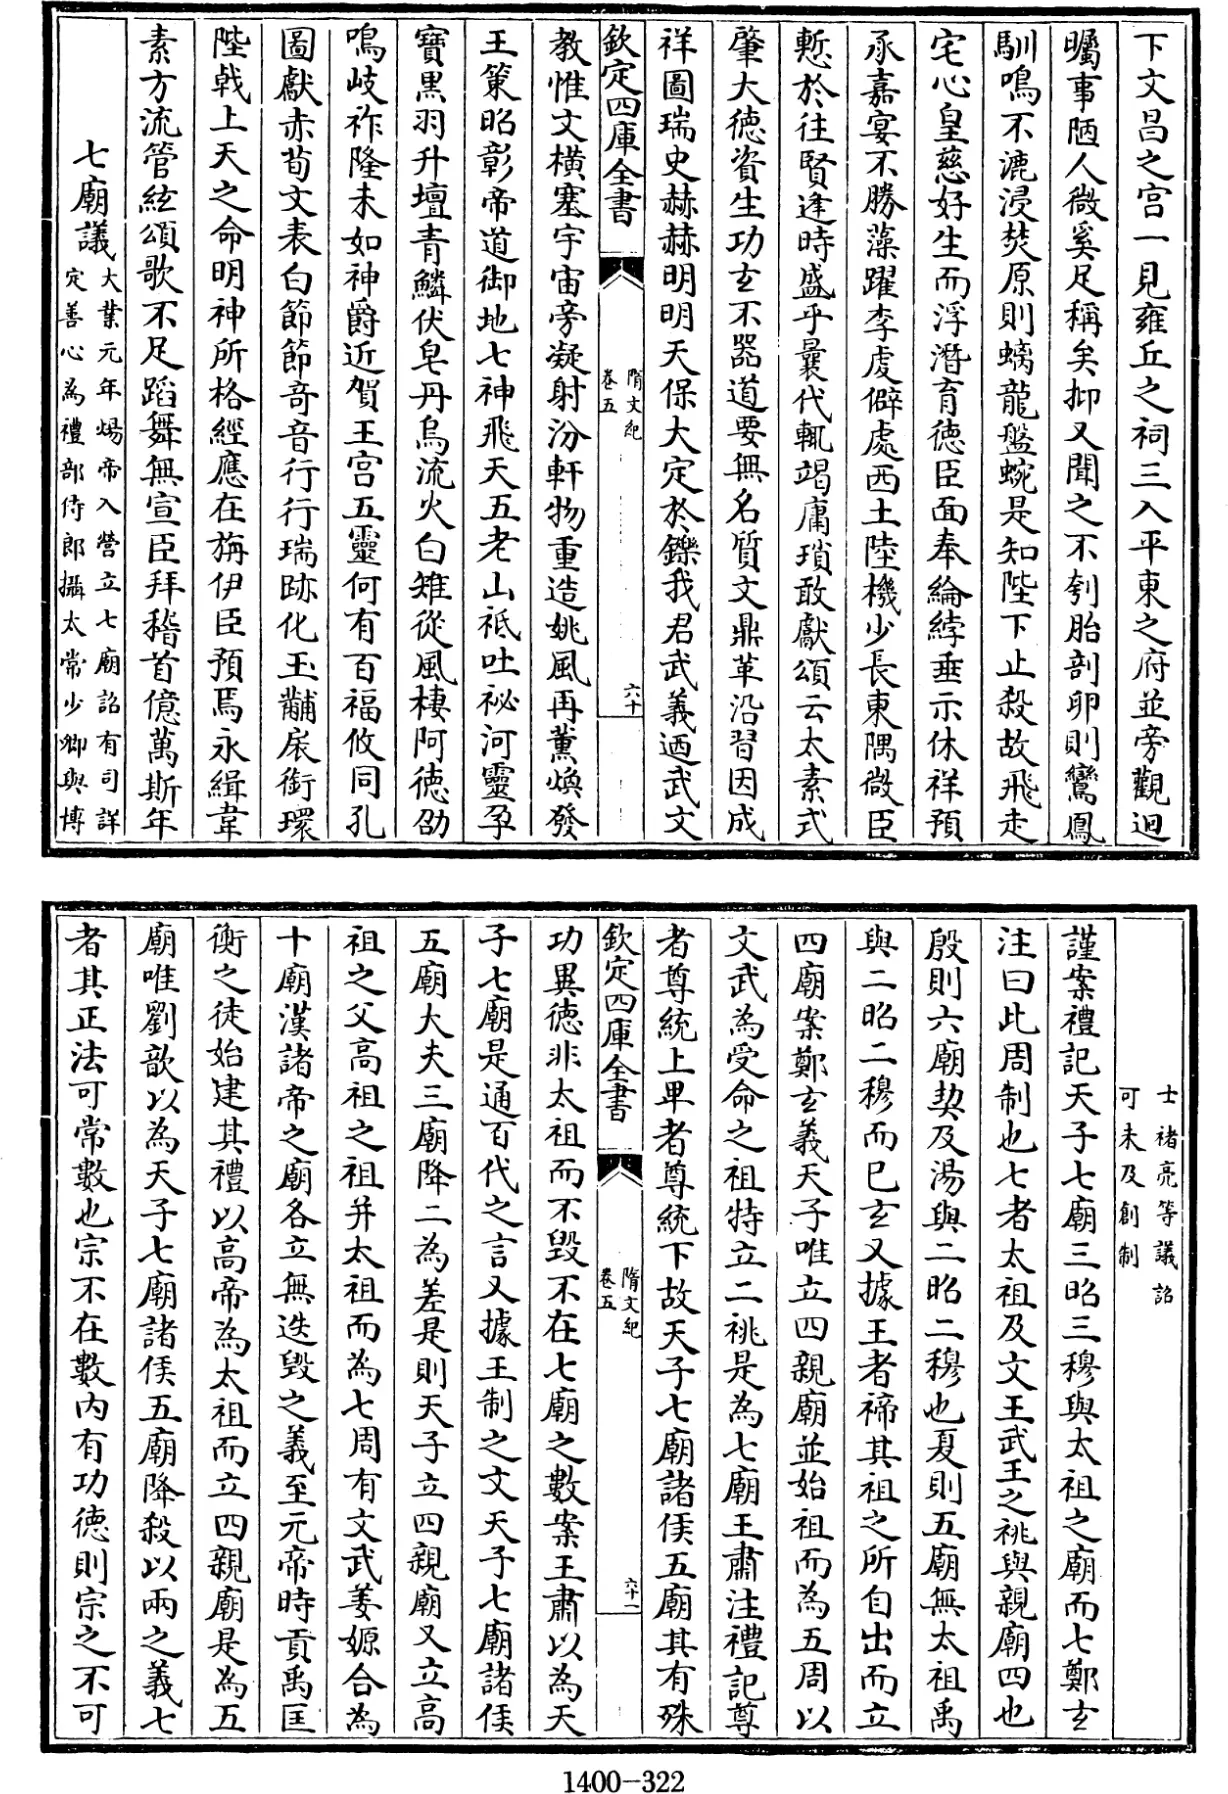 下文昌之宫一見雍丘之祠三入平東之府並旁觀迥
矚事陋人微奚足稱矣抑又聞之不刳胎剖卵則鸞鳳
馴鳴不漉浸焚原則螭龍盤蜿是知陛下止殺故飛走
宅心皇慈好生而浮潛育徳臣面奉綸綍垂示休祥預
承嘉宴不勝藻躍李虔僻處西土陸機少長東隅微臣
慙於往賢逢時盛乎曩代輒竭庸瑣敢獻頌云太素式
肇大徳資生功玄不器道要無名質文鼎革沿習因成
祥圖瑞史赫赫明明天保大定於鑠我君武義迺武文
欽定四庫全書
隋文紀
卷五
六十
教惟文横塞宇宙旁凝射汾軒物重造姚風再薫煥發
王策昭彰帝道御地七神飛天五老山祗吐祕河靈孕
寶黒羽升壇青鱗伏皁丹烏流火白雉從風棲阿徳劭
鳴岐祚隆未如神爵近賀王宫五靈何有百福攸同孔
圖獻赤荀文表白節節竒音行行瑞跡化玉黼扆銜環
陛戟上天之命明神所格經應在旃伊臣預焉永緝韋
素方流管絃頌歌不足蹈舞無宣臣拜稽首億萬斯年
七廟議
大業元年煬帝入營立七廟詔有司詳
定善心為禮部侍郎攝太常少卿與博
士禇亮等議詔
可未及創制
謹案禮記天子七廟三昭三穆與太祖之廟而七鄭玄
注曰此周制也七者太祖及文王武王之祧與親廟四也
殷則六廟契及湯與二昭二穆也夏則五廟無太祖禹
與二昭二穆而已玄又據王者禘其祖之所自出而立
四廟案鄭玄義天子唯立四親廟並始祖而為五周以
文武為受命之祖特立二祧是為七廟王肅注禮記尊
者尊統上卑者尊統下故天子七廟諸侯五廟其有殊
欽定四庫全書
隋文紀
卷五
六十一
功異徳非太祖而不毀不在七廟之數案王肅以為天
子七廟是通百代之言又據王制之文天子七廟諸侯
五廟大夫三廟降二為差是則天子立四親廟又立髙
祖之父髙祖之祖并太祖而為七周有文武姜嫄合為
十廟漢諸帝之廟各立無迭毀之義至元帝時貢禹匡
衡之徒始建其禮以髙帝為太祖而立四親廟是為五
廟唯劉歆以為天子七廟諸侯五廟降殺以兩之義七
者其正法可常數也宗不在數内有功徳則宗之不可
1400-322